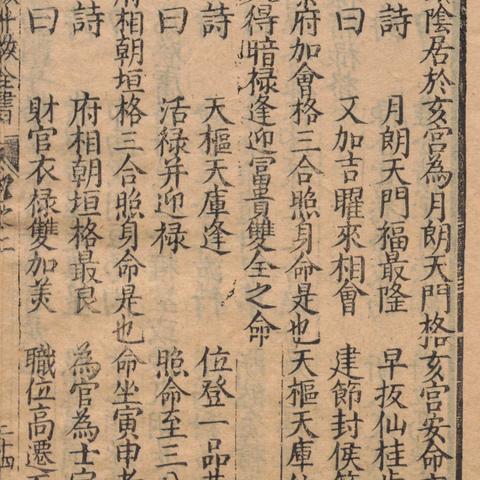 陰居於亥宮為月朗天門格亥宮安命
詩　月朗天門福最隆　早扳仙桂
曰　又加吉曜來相會　建節封侯
府加會格三合照身命是也天樞天庫
得暗祿逢迎富貴雙全之命
詩　天樞天庫逢　位登一品
曰　活祿并迎祿　照命至三
府相朝垣格三合照身命是也命坐寅申
詩　府相朝垣格最良　為官為士
曰　財官衣祿雙加美　職位高遷
全書
二十四